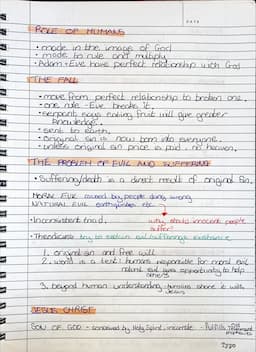 DATE
ROLE OF HUMANS
• made in the image of God
• made to rule and multiply
• Adam + Eve have perfect relationship with God
THE FALL
• move from perfect relationship to broken one.
• one rule - Eve breaks it.
• serpent says eating fruit will give greater
knowledge.
• sent to earth.
• original sin is now born into everyone.
• unless original sin price is paid, no heaven.
THE PROBLEM OF EVIL AND SUFFERING
• Suffering/death is a direct result of original sin.
MORAL EVIL caused by people doing wrong
NATURAL EVIL earthquakes etc.
• Inconsistent triad. why should innocent people
suffer?
• Theodicies try to explain evil/suffering's existence
1. original sin and free will
2. world is a test: humans responsible for moral evil
natural evil gives opportunity to help
others
3. beyond human understanding, humans share it with
Jesus
JESUS CHRIST
SON OF GOD - conceived by Holy Spirit, incarnate - Fulfills Old
Testament